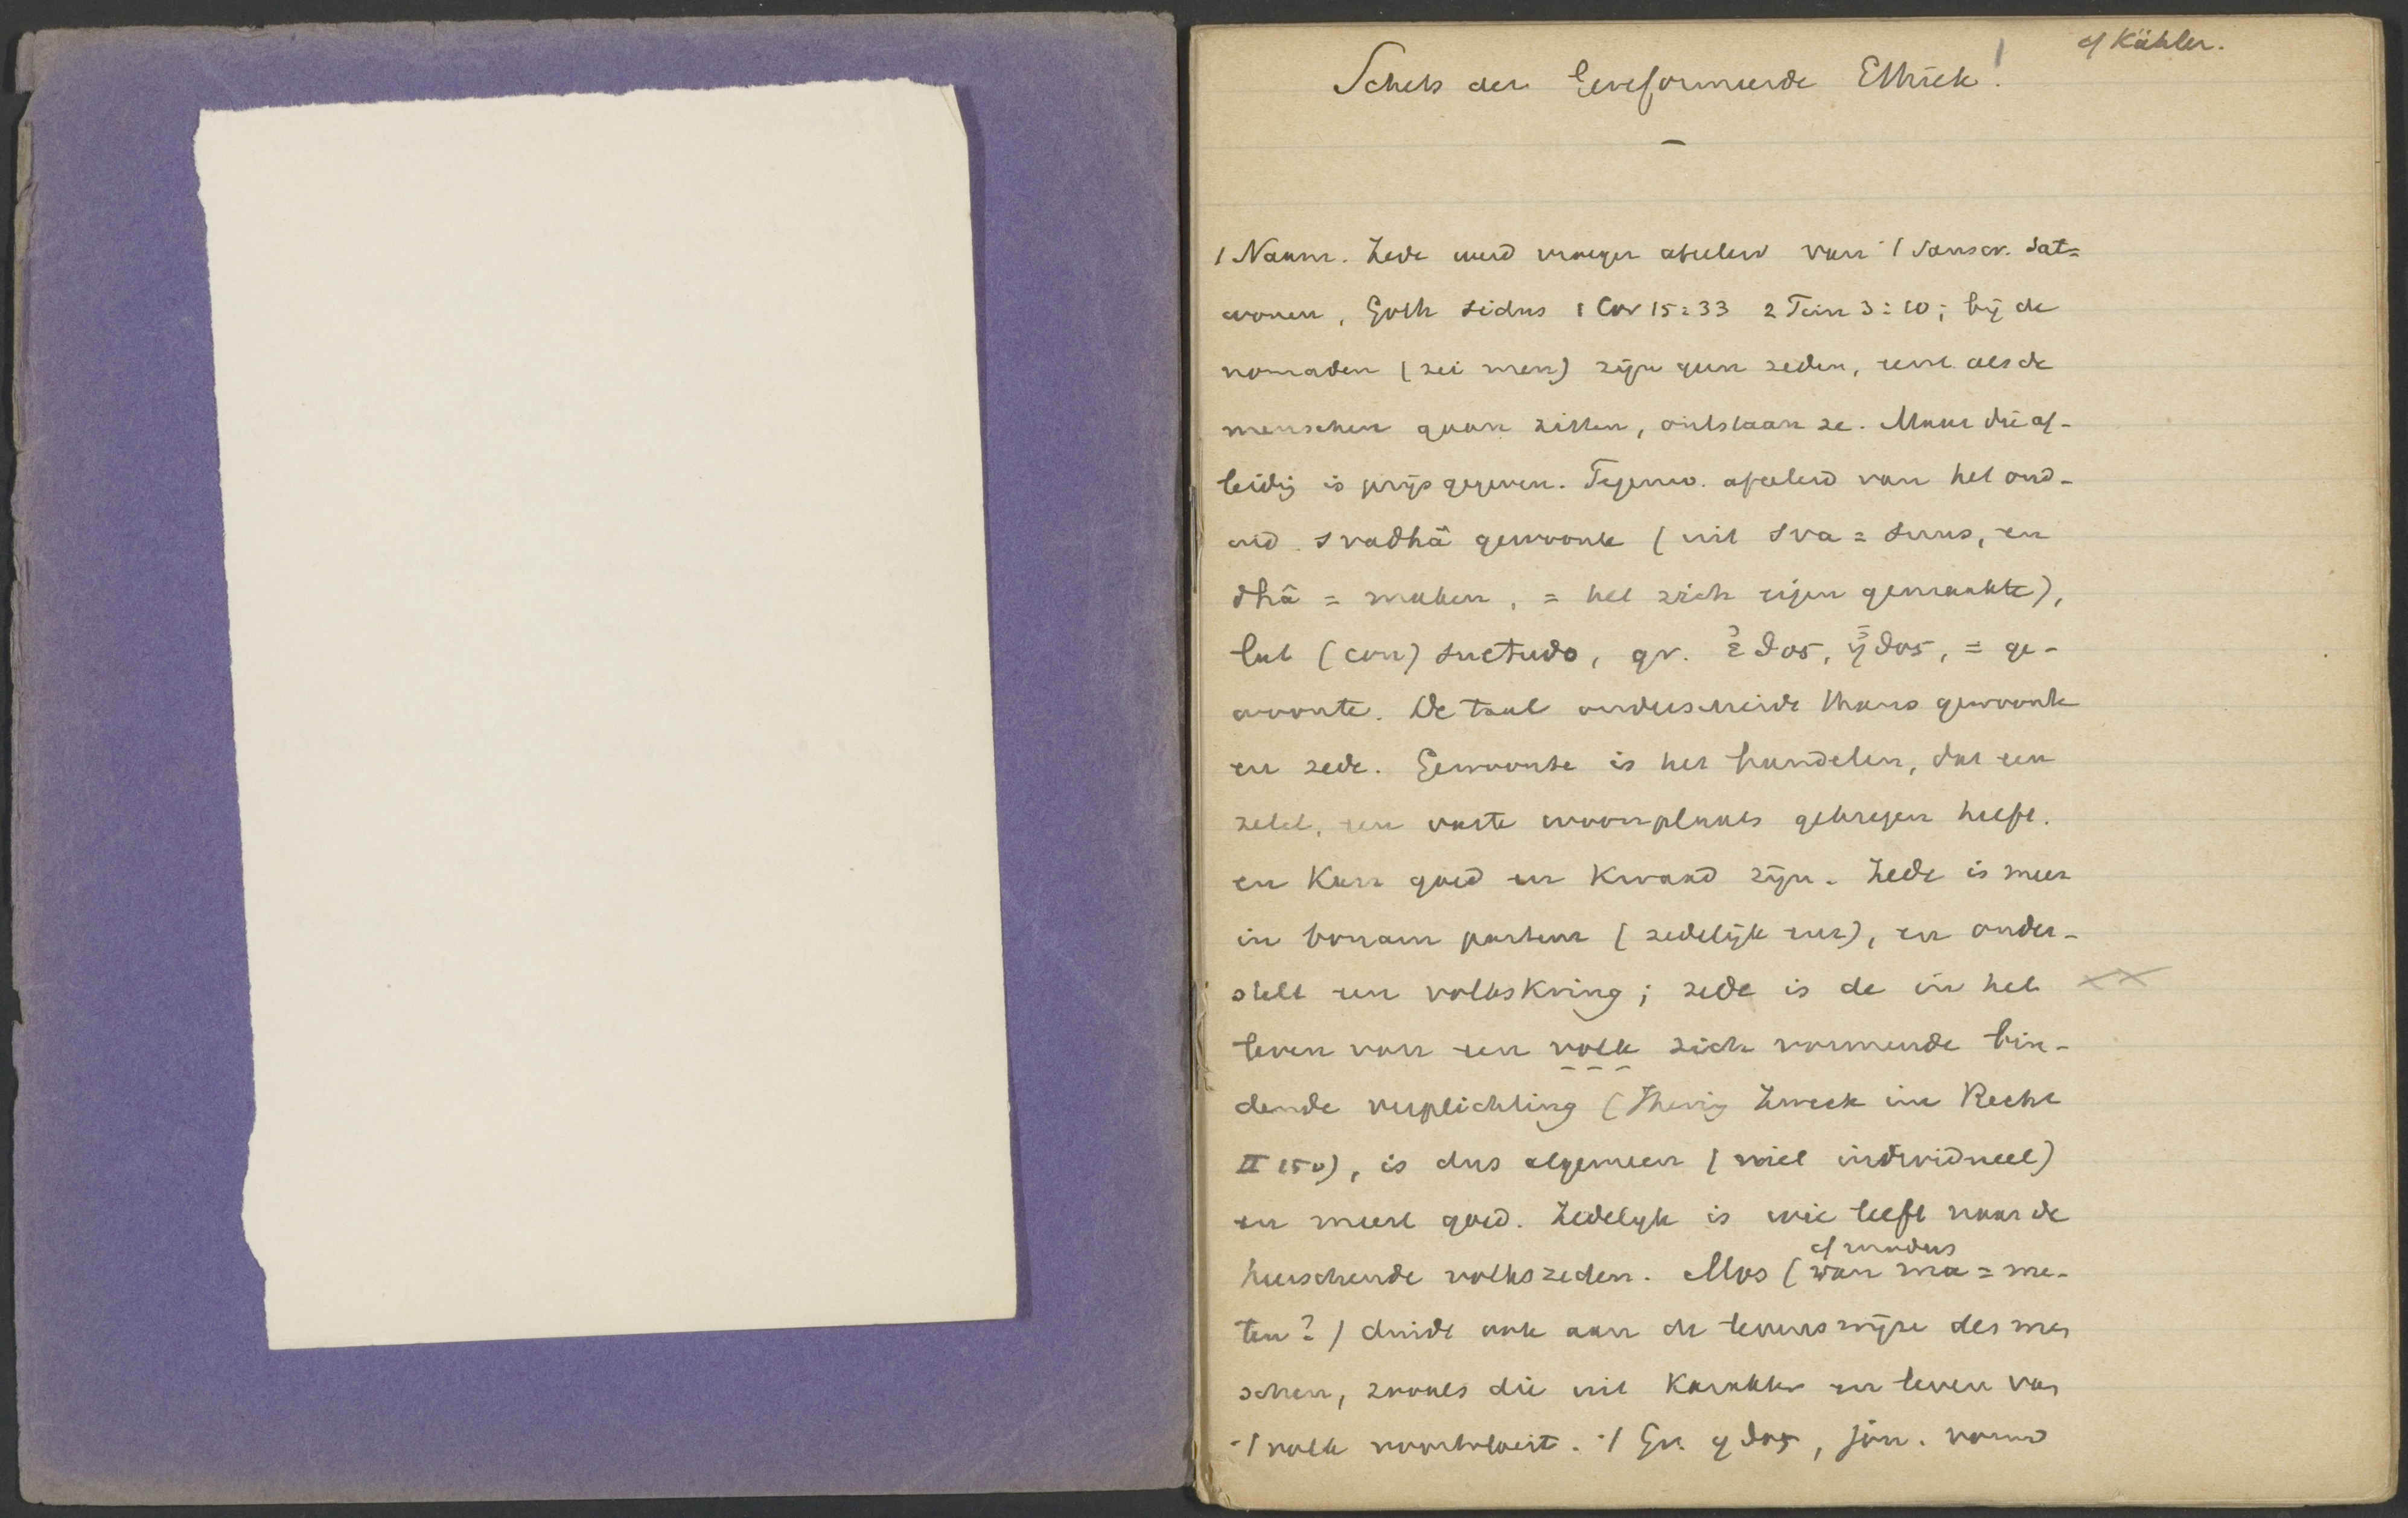 cf Kähler.
Schets der Gereformeerde Ethiek!
1 Naam. Zede werd vroeger afgeleid van 't Sanscr. sat=
wonen, Goth sidus 1 Cor 15:33 2 Tim 3:10; bij de
nomaden (zei men) zijn geen zeden, eerst als de
menschen gaan zitten, ontstaan ze. Maar die af-
leidg is prijs gegeven. Tegenw. afgeleid van het oud-
ind. svadhâ gewoonte (uit sva = suus, en
dhâ = maken, = het zich eigen gemaakte),
lat (con) suetudo, gr. ἔθος, ἦθος, = ge-
woonte. De taal onderscheidt thans gewoonte
en zede. Gewoonte is het handelen, dat een
zetel, een vaste woonplaats gekregen heeft.
en kan goed en kwaad zijn. Zede is meer
in bonam partem (zedelijk enz), en onder-
stelt een volkskring; zede is de in het
leven van een volk zich vormende bin-
dende verplichting (Ihering Zweck im Recht
II 150), is dus algemeen (niet individueel)
en meest goed. Zedelijk is wie leeft naar de
cf modus
heerschende volkszeden. Mos (van ma = me-
ten?) duidt ook aan de levenswijze des men
schen, zooals die uit karakter en leven van
't volk voortvloeit. 't Gr. ηθος, jon. vorm